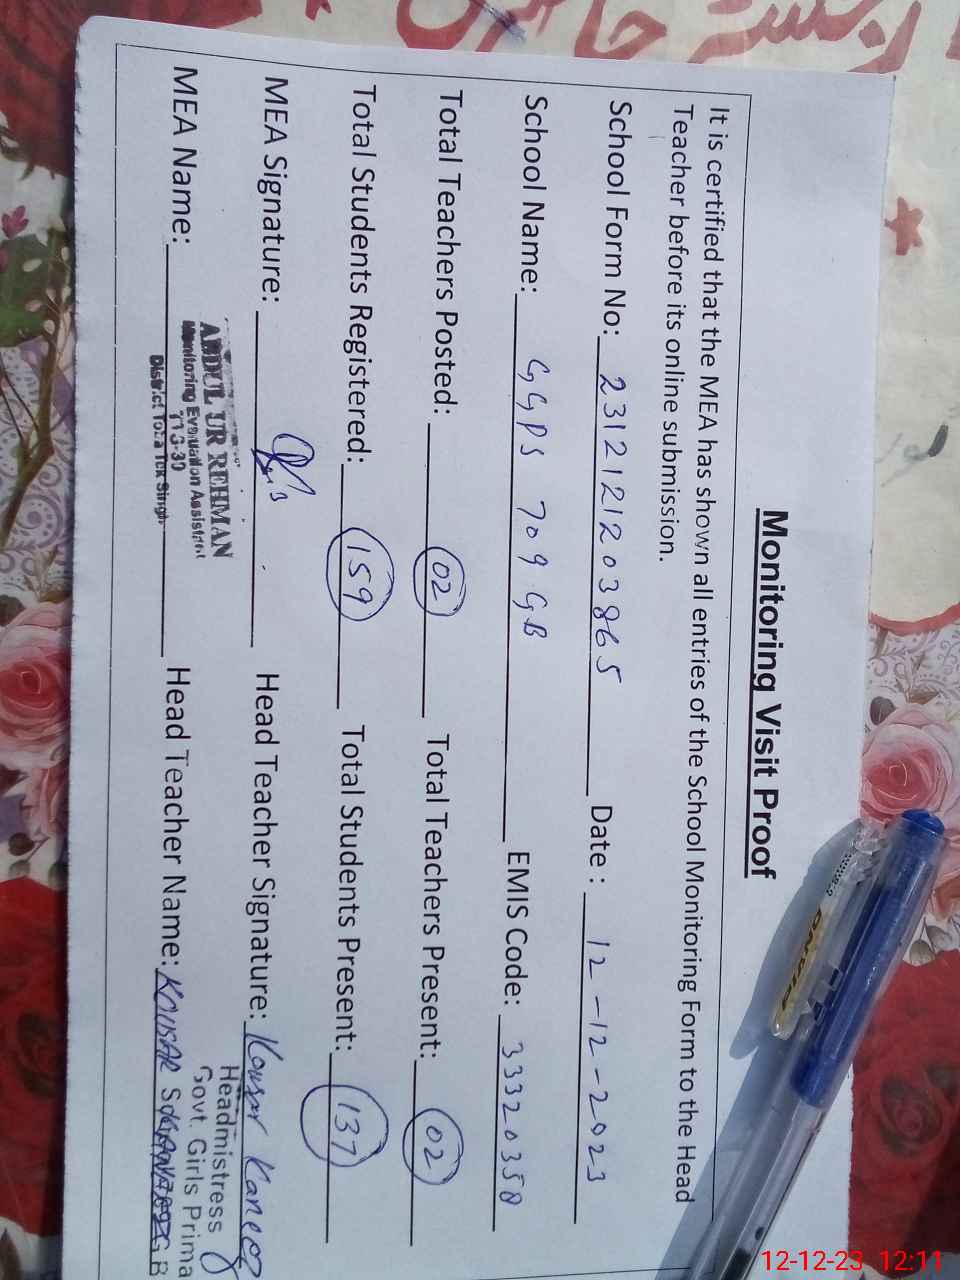 Monitoring Visit Proof
It is certified that the MEA has shown all entries of the School Monitoring Form to the Head
Teacher before its online submission.
School Form No: 2312121203865 Date : 12-12-2023
School Name: GGPS 709 GB EMIS Code: 33320350
Total Teachers Posted: 02 Total Teachers Present: 02
Total Students Registered: 159 Total Students Present: 137
MEA Signature: Head Teacher Signature: Kousar
MEA Name: Head Teacher Name: KAUSAR
ABDUL UR REHMAN
Monitoring Evaluation Assistant
District Toba Tek Singh
Headmistress
Govt. Girls Prima
G.B
12-12-23 12:11